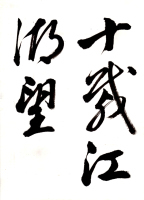 十载江
湖望